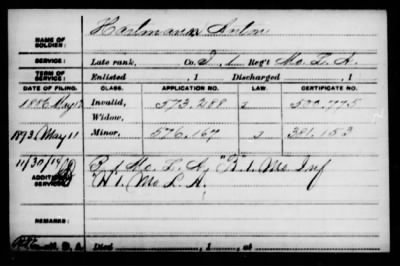 NAME OF SOLDIER: Hartmann Anton
SERVICE: Late rank, Co. I, 1 Reg't Mo. L. A.
TERM OF SERVICE: Enlisted , 1 Discharged , 1
DATE OF FILING. CLASS. APPLICATION NO. LAW. CERTIFICATE NO.
1886 May Invalid, 573.288
Widow,
1893 May 11 Minor, 576.167 381.153
11/30/14
ADDITIONAL SERVICES: B. 1 Mo. L. A. "K" 1. Mo Inf
H 1. Mo L. A.
REMARKS:
Died , 1 , at